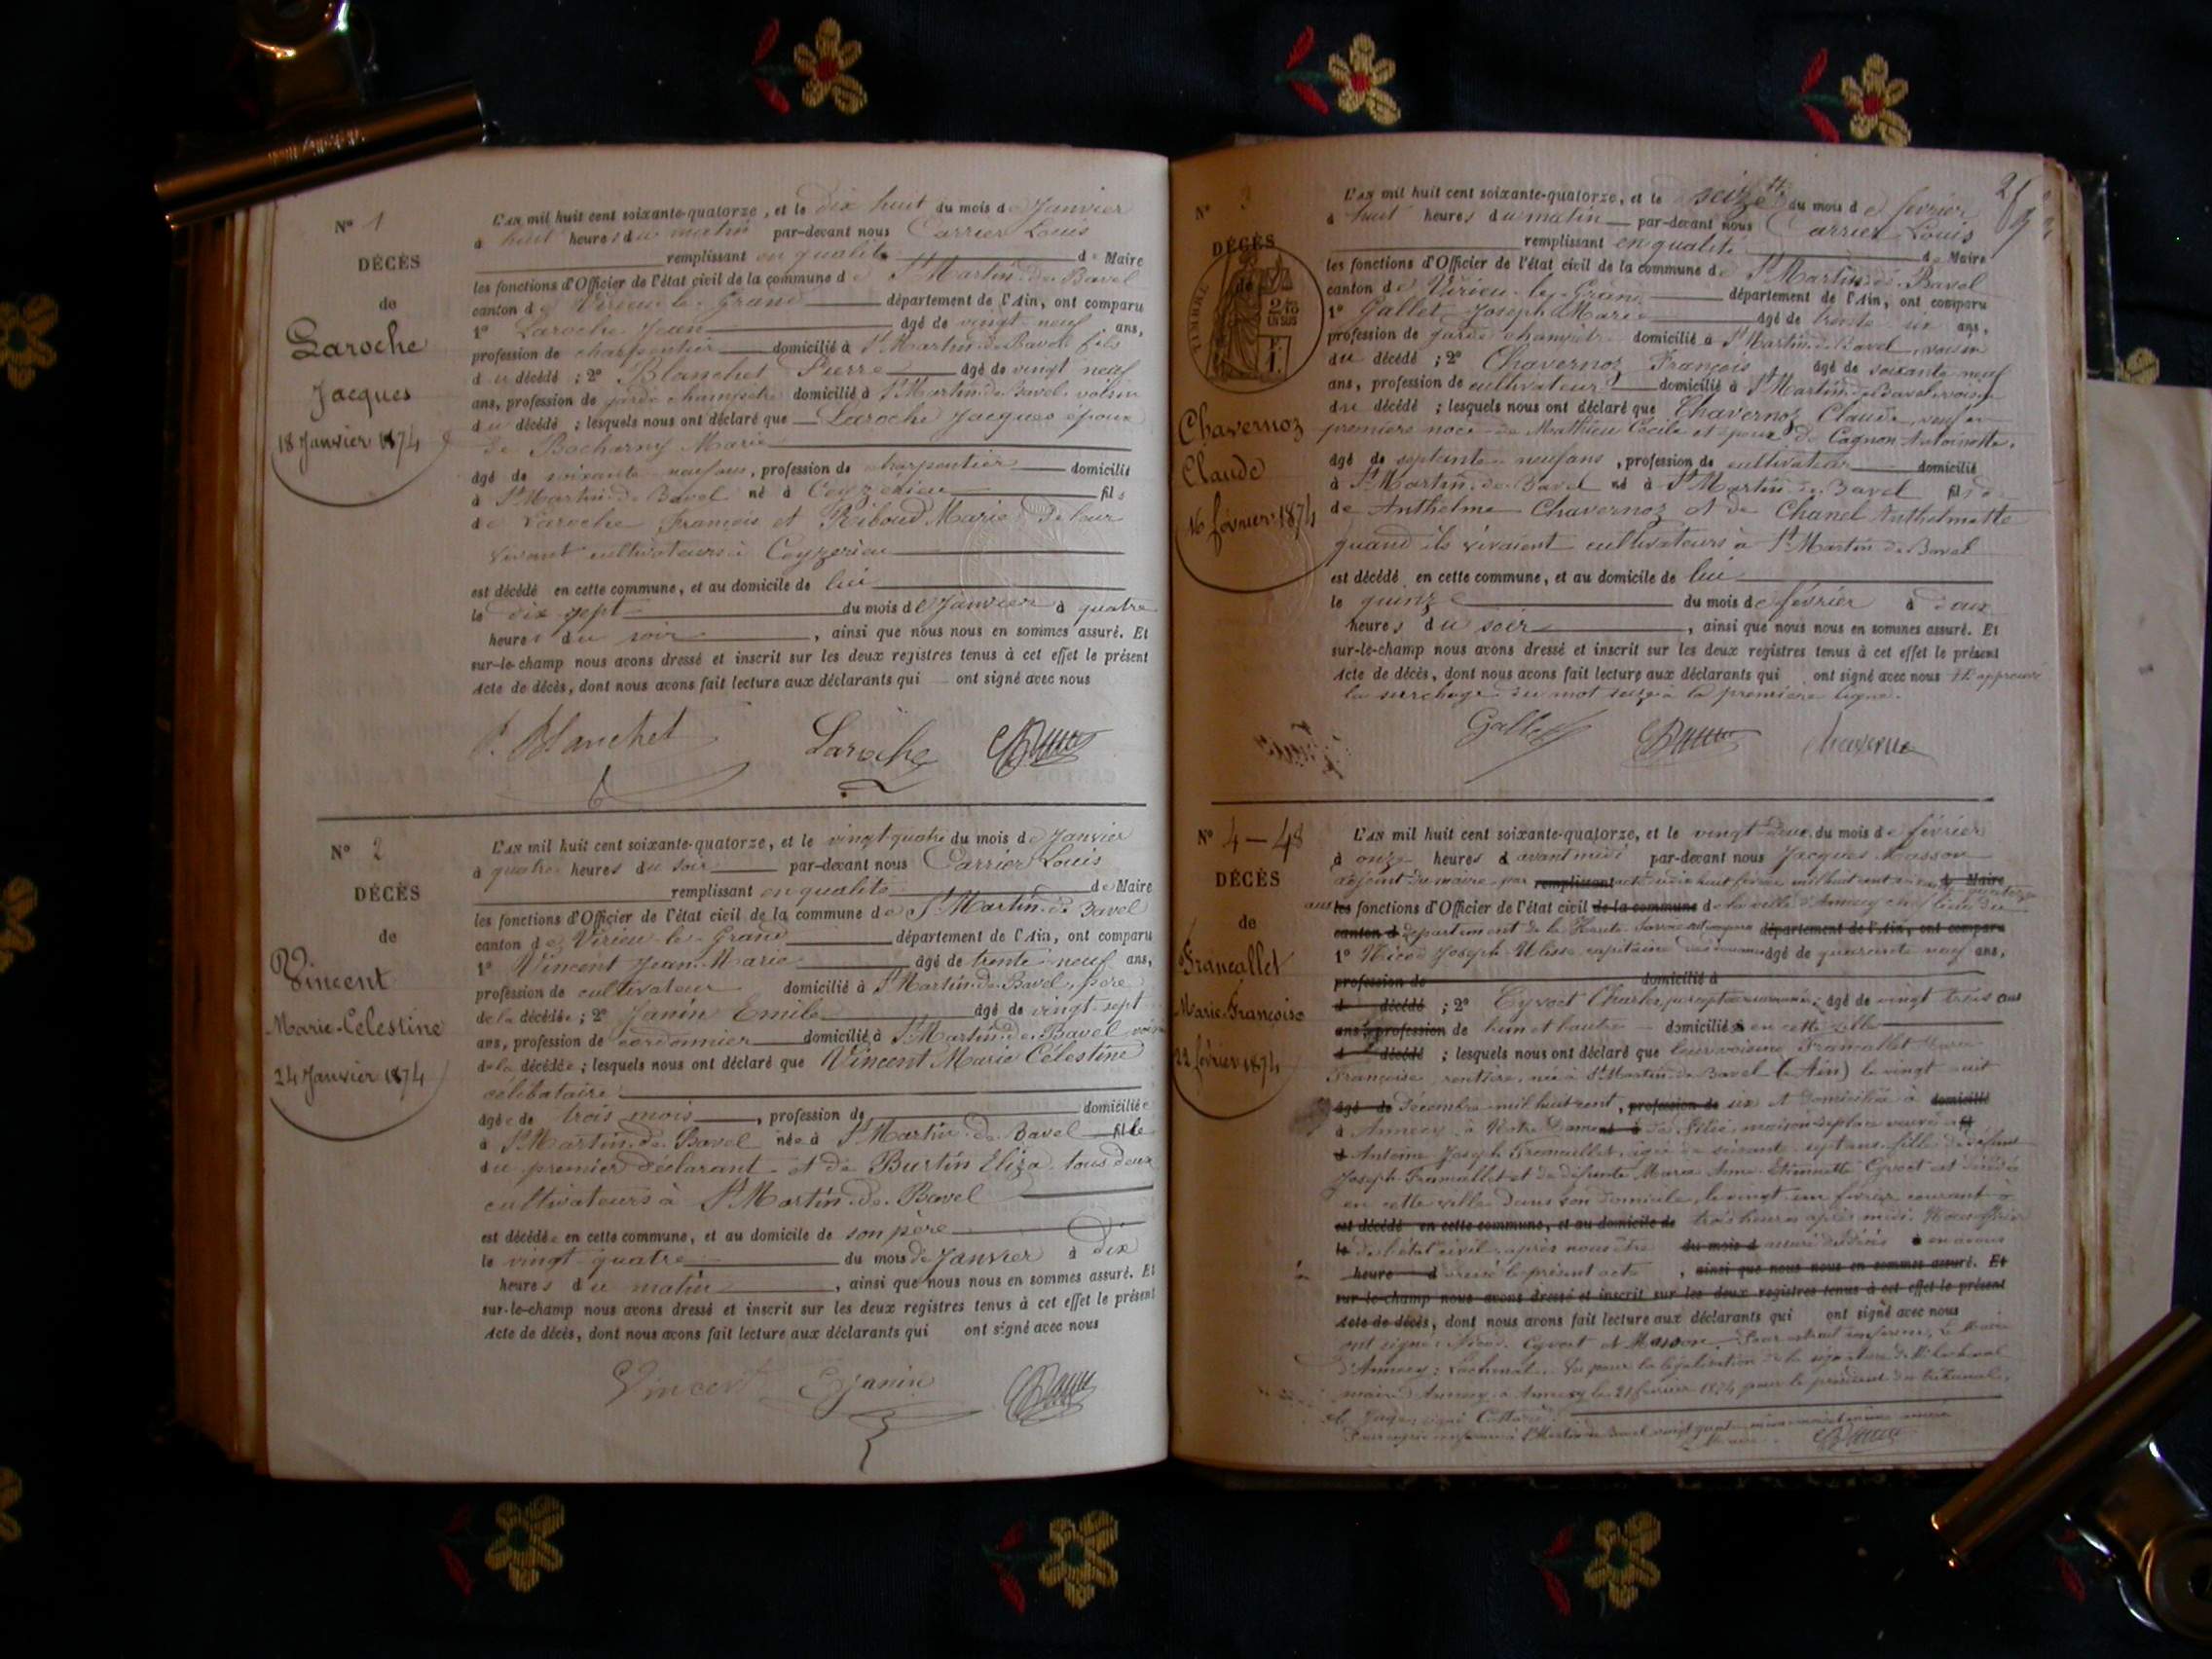 N° 1
DÉCÈS
de
Laroche
Jacques
18 Janvier 1874
L'AN mil huit cent soixante-quatorze, et le dix huit du mois de Janvier
à huit heures du matin par-devant nous Carrier Louis
remplissant en qualité de Maire
les fonctions d'Officier de l'état civil de la commune de St Martin-de-Bavel
canton de Virieu-le-Grand département de l'Ain, ont comparu
1° Laroche Jean âgé de vingt neuf ans,
profession de charpentier domicilié à St Martin-de-Bavel fils
du décédé ; 2° Blanchet Pierre âgé de vingt neuf
ans, profession de garde champêtre domicilié à St Martin-de-Bavel voisin
du décédé ; lesquels nous ont déclaré que Laroche Jacques époux
de Marie
âgé de soixante neuf ans, profession de charpentier domicilié
à St Martin-de-Bavel né à Ceyzerieu fils
de Laroche François et Riboud Marie de leur
vivant cultivateurs à Ceyzerieu
est décédé en cette commune, et au domicile de lui
le dix sept du mois de Janvier à quatre
heures du soir, ainsi que nous nous en sommes assuré. Et
sur-le-champ nous avons dressé et inscrit sur les deux registres tenus à cet effet le présent
Acte de décès, dont nous avons fait lecture aux déclarants qui ont signé avec nous
P. Blanchet Laroche
N° 2
DÉCÈS
de
Vincent
Marie-Célestine
24 Janvier 1874
L'AN mil huit cent soixante-quatorze, et le vingt-quatre du mois de Janvier
à quatre heures du soir par-devant nous Carrier Louis
remplissant en qualité de Maire
les fonctions d'Officier de l'état civil de la commune de St Martin-de-Bavel
canton de Virieu-le-Grand département de l'Ain, ont comparu
1° Vincent Jean-Marie âgé de trente-neuf ans,
profession de cultivateur domicilié à St Martin-de-Bavel, père
de la décédée ; 2° Janin Emile âgé de vingt-sept
ans, profession de cordonnier domicilié à St Martin-de-Bavel voisin
de la décédée ; lesquels nous ont déclaré que Vincent Marie Célestine
célibataire
âgée de trois mois, profession de domiciliée
à St Martin-de-Bavel née à St Martin-de-Bavel fille
du premier déclarant et de Burtin Eliza tous deux
cultivateurs à St Martin-de-Bavel
est décédée en cette commune, et au domicile de son père
le vingt quatre du mois de Janvier à dix
heures du matin, ainsi que nous nous en sommes assuré. Et
sur-le-champ nous avons dressé et inscrit sur les deux registres tenus à cet effet le présent
Acte de décès, dont nous avons fait lecture aux déclarants qui ont signé avec nous
Vincent E Janin
N° 3
DÉCÈS
de
TIMBRE
Chavernoz
Claude
16 février 1874
L'AN mil huit cent soixante-quatorze, et le seize du mois de février
à huit heures du matin par-devant nous Carrier Louis
remplissant en qualité de Maire
les fonctions d'Officier de l'état civil de la commune de St Martin-de-Bavel
canton de Virieu-le-Grand département de l'Ain, ont comparu
1° Gallet Joseph Marie âgé de trente six ans,
profession de garde champêtre domicilié à St Martin-de-Bavel, voisin
du décédé ; 2° Chavernoz François âgé de soixante neuf
ans, profession de cultivateur domicilié à St Martin-de-Bavel voisin
du décédé ; lesquels nous ont déclaré que Chavernoz Claude, veuf en
premiere noce de Mathieu Cécile et époux de Cagnon Antoinette,
âgé de septante-neuf ans, profession de cultivateur domicilié
à St Martin-de-Bavel né à St Martin-de-Bavel fils
de Anthelme Chavernoz et de Chanel Anthelmette
quand ils vivaient cultivateurs à St Martin de Bavel
est décédé en cette commune, et au domicile de lui
le quinze du mois de février à deux
heures du soir, ainsi que nous nous en sommes assuré. Et
sur-le-champ nous avons dressé et inscrit sur les deux registres tenus à cet effet le présent
Acte de décès, dont nous avons fait lecture aux déclarants qui ont signé avec nous et approuvé
la surcharge du mot seize à la première ligne.
Gallet Chavernoz
N° 4-48
DÉCÈS
de
Francallet
Marie-Françoise
22 février 1874
L'AN mil huit cent soixante-quatorze, et le vingt-deux du mois de février
à onze heures avant midi par-devant nous Jacques Masson
adjoint du maire par remplissant
les fonctions d'Officier de l'état civil de la commune de la ville d'Annecy chef lieu du
canton d département de la Haute-Savoie département de l'Ain, ont comparu
1° Nicod Joseph Ulisse capitaine âgé de quarante neuf ans,
profession de domicilié à
d décédé ; 2° Eyvoet Charles âgé de vingt trois ans
ans, profession de domiciliés en cette ville
d décédé ; lesquels nous ont déclaré que leur voisine Francallet Marie
Françoise rentière, née à St Martin-de-Bavel (Ain) le vingt huit
âgé de Décembre mil huit cent, profession de six et domiciliée à domicilié
à Annecy à Notre Dame maison veuve
Antoine Joseph âgée de soixante sept ans, fille de défunt
Joseph Francallet et de défunte Marie Anne Etiennette Eyvoet est décédée
en cette ville dans son domicile, le vingt un février courant à
est décédé en cette commune, et au domicile de trois heures après midi. Nous officier
le de l'état civil après nous être du mois d assuré du décès en avons
heure d dressé le présent acte, ainsi que nous nous en sommes assuré. Et
sur-le-champ nous avons dressé et inscrit sur les deux registres tenus à cet effet le présent
Acte de décès, dont nous avons fait lecture aux déclarants qui ont signé avec nous
ont signé: Nicod, Eyvoet et Masson. Pour extrait conforme, Le Maire
d'Annecy: Lachenal. Vu pour la légalisation de la signature de M. Lachenal
maire d'Annecy à Annecy le février 1874 pour le président du tribunal,